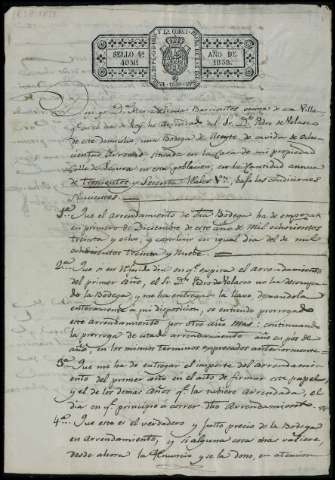 SELLO 4º AÑO DE
40 MS 1838.
Digo yo Dn. Barrientos vecino de esta Villa
q. en el dia de hoy he al Sr. Dn. Pedro de Velasco
de este domicilio, una Bodega de Aceyte de de ocho
cientas arrobas, situada en la Casa de mi propiedad
Calle de en esta poblacion, en la Cantidad annua
de Trescientos y Sesenta Reales Vn., bajo las condiciones
siguientes
1ª.. Que el arrendamiento de dha Bodega ha de empezar
en primero de Diciembre de este año de Mil ochocientos
treinta y ocho, y cumplir en igual dia del de mil
ochocientos treinta y nueve.
2ª.. Que si en el dia en q. espira el arrendamiento
del primer año, el Sr. Dn. Pedro de Velasco no ha desocupa
do la Bodega y me ha entregado la llave dexandola
enteramente a mi disposicion, se entiende prorrogado
este arrendamiento por otro año mas: continuando
la prorroga de este arrendamiento año en pos de
año, en los mismos terminos expresados anteriormente.
3ª.. Que me ha de entregar el importe del arrendami
ento del primer año en el acto de firmar este papel
y el de los demas años q. la tubiere arrendada, el
dia en q. principie a correr dho Arrendamiento.
4ª.. Que este es el verdadero y justo precio de la Bodega
en arrendamiento; y si alguna cosa mas valiere,
desde ahora la renuncio y se la dono, en atencion